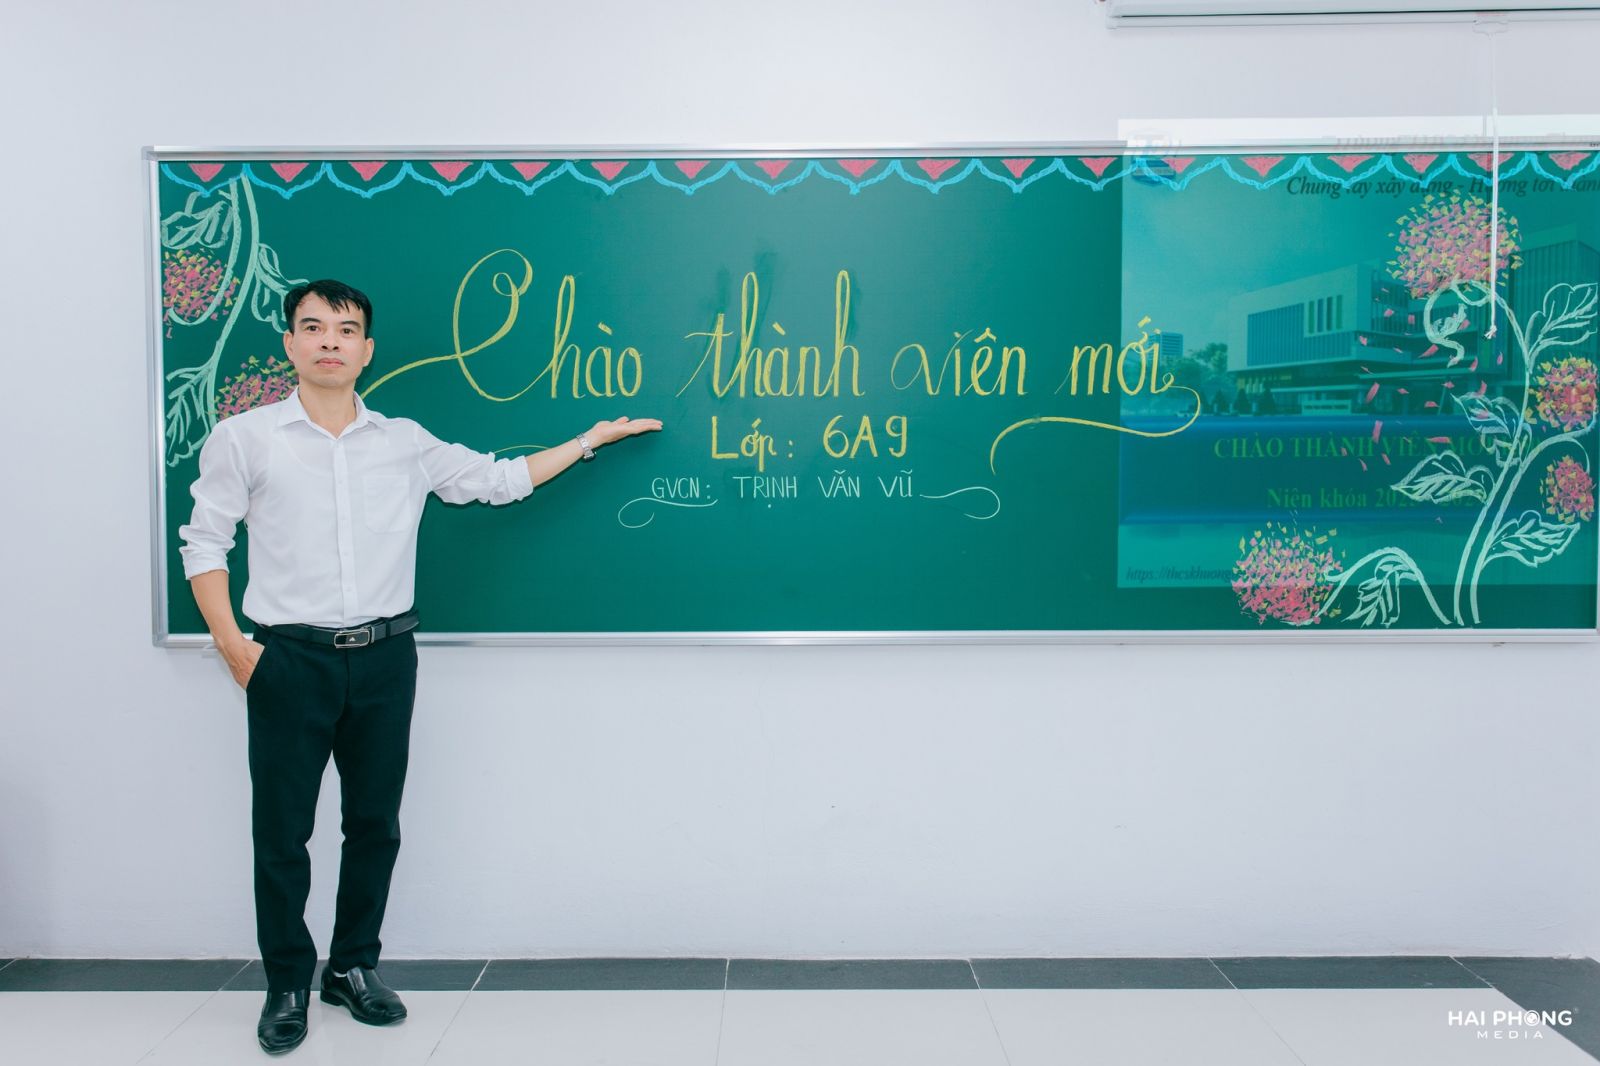 Chào thành viên mới
Lớp: 6A9
GVCN: TRỊNH VĂN VŨ
Chung tay xây dựng - Hướng tới
CHÀO THÀNH VIÊN MỚI
Niên khóa
https://thcskhuong
HAI PHONG
MEDIA